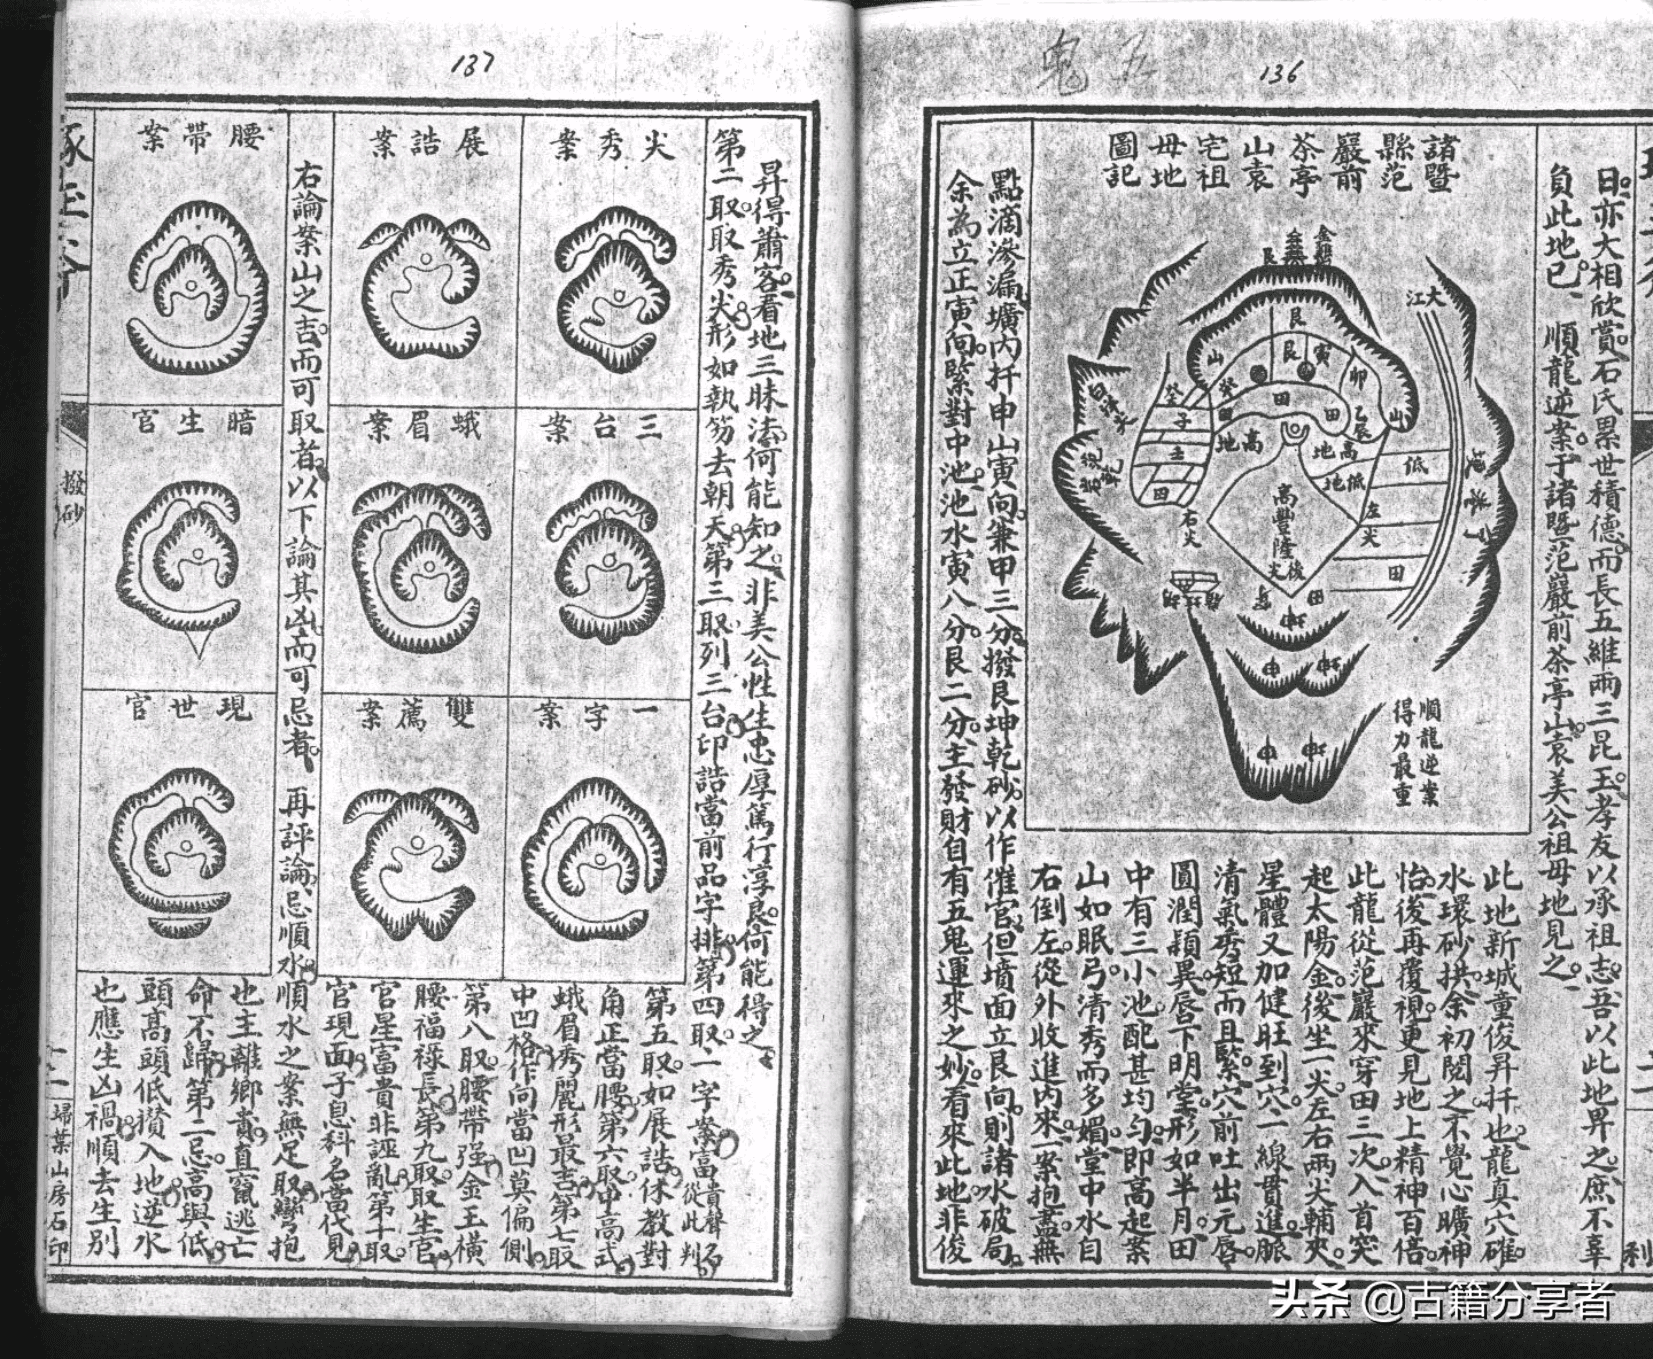 136
鬼 五
日亦大相欣賞石氏累世積德而長五維兩三昆玉孝友以承祖志吾以此地畀之庶不辜
負此地已 順龍逆案于諸暨范巖前茶亭山袁美公祖母地見之
諸暨
縣范
巖前
茶亭
山袁
宅祖
母地
圖記
大江
艮
山
艮
寅
卯
山
乙辰
癸
子
壬
田
田
田
田
高地
高地
低地
低
左尖
右尖
高豐隆
後尖
田
田
順龍逆案
得力最重
此地新城童俊昇扦也龍真穴確
水環砂拱余初閱之不覺心曠神
怡後再覆視更見地上精神百倍
此龍從范巖來穿田三次入首突
起太陽金後坐一尖左右兩尖輔夾
星體又加健旺到穴一線貫進脈
清氣秀短而且緊穴前吐出元唇
圓潤穎異唇下明堂形如半月田
中有三小池配甚均勻即高起案
山如眠弓清秀而多媚堂中水自
右倒左從外收進內來一案抱盡無
點滴滲漏壙內扦申山寅向兼甲三分撥艮坤乾砂以作催官但墳面立艮向則諸水破局
余為立正寅向緊對中池池水寅八分艮二分主發財自有五鬼運來之妙看來此地非俊
利
137
昇得蕭客看地三昧濤何能知之非美公性生忠厚篤行淳良何能得之
第二取取秀尖形如執笏去朝天第三取列三台印誥當前品字排第四取一字案富貴聲名從此判
尖秀案
展誥案
腰帶案
三台案
蛾眉案
暗生官
一字案
雙薦案
現世官
第五取如展誥休教對
角正當腰第六取中高式
蛾眉秀麗形最吉第七取
中凹格作向當凹莫偏側
第八取腰帶强金玉橫
腰福祿長第九取取生官
官星富貴非誣亂第十取
官現面子息科名當代見
右論案山之吉而可取者以下論其凶而可忌者 再評論忌順水順水之案無足取彎抱
也主離鄉賁直竄逃亡
命不歸第二忌高與低
頭高頭低攢入地逆水
也應生凶禍順去生別
撥砂
掃葉山房石印
头条 @古籍分享者